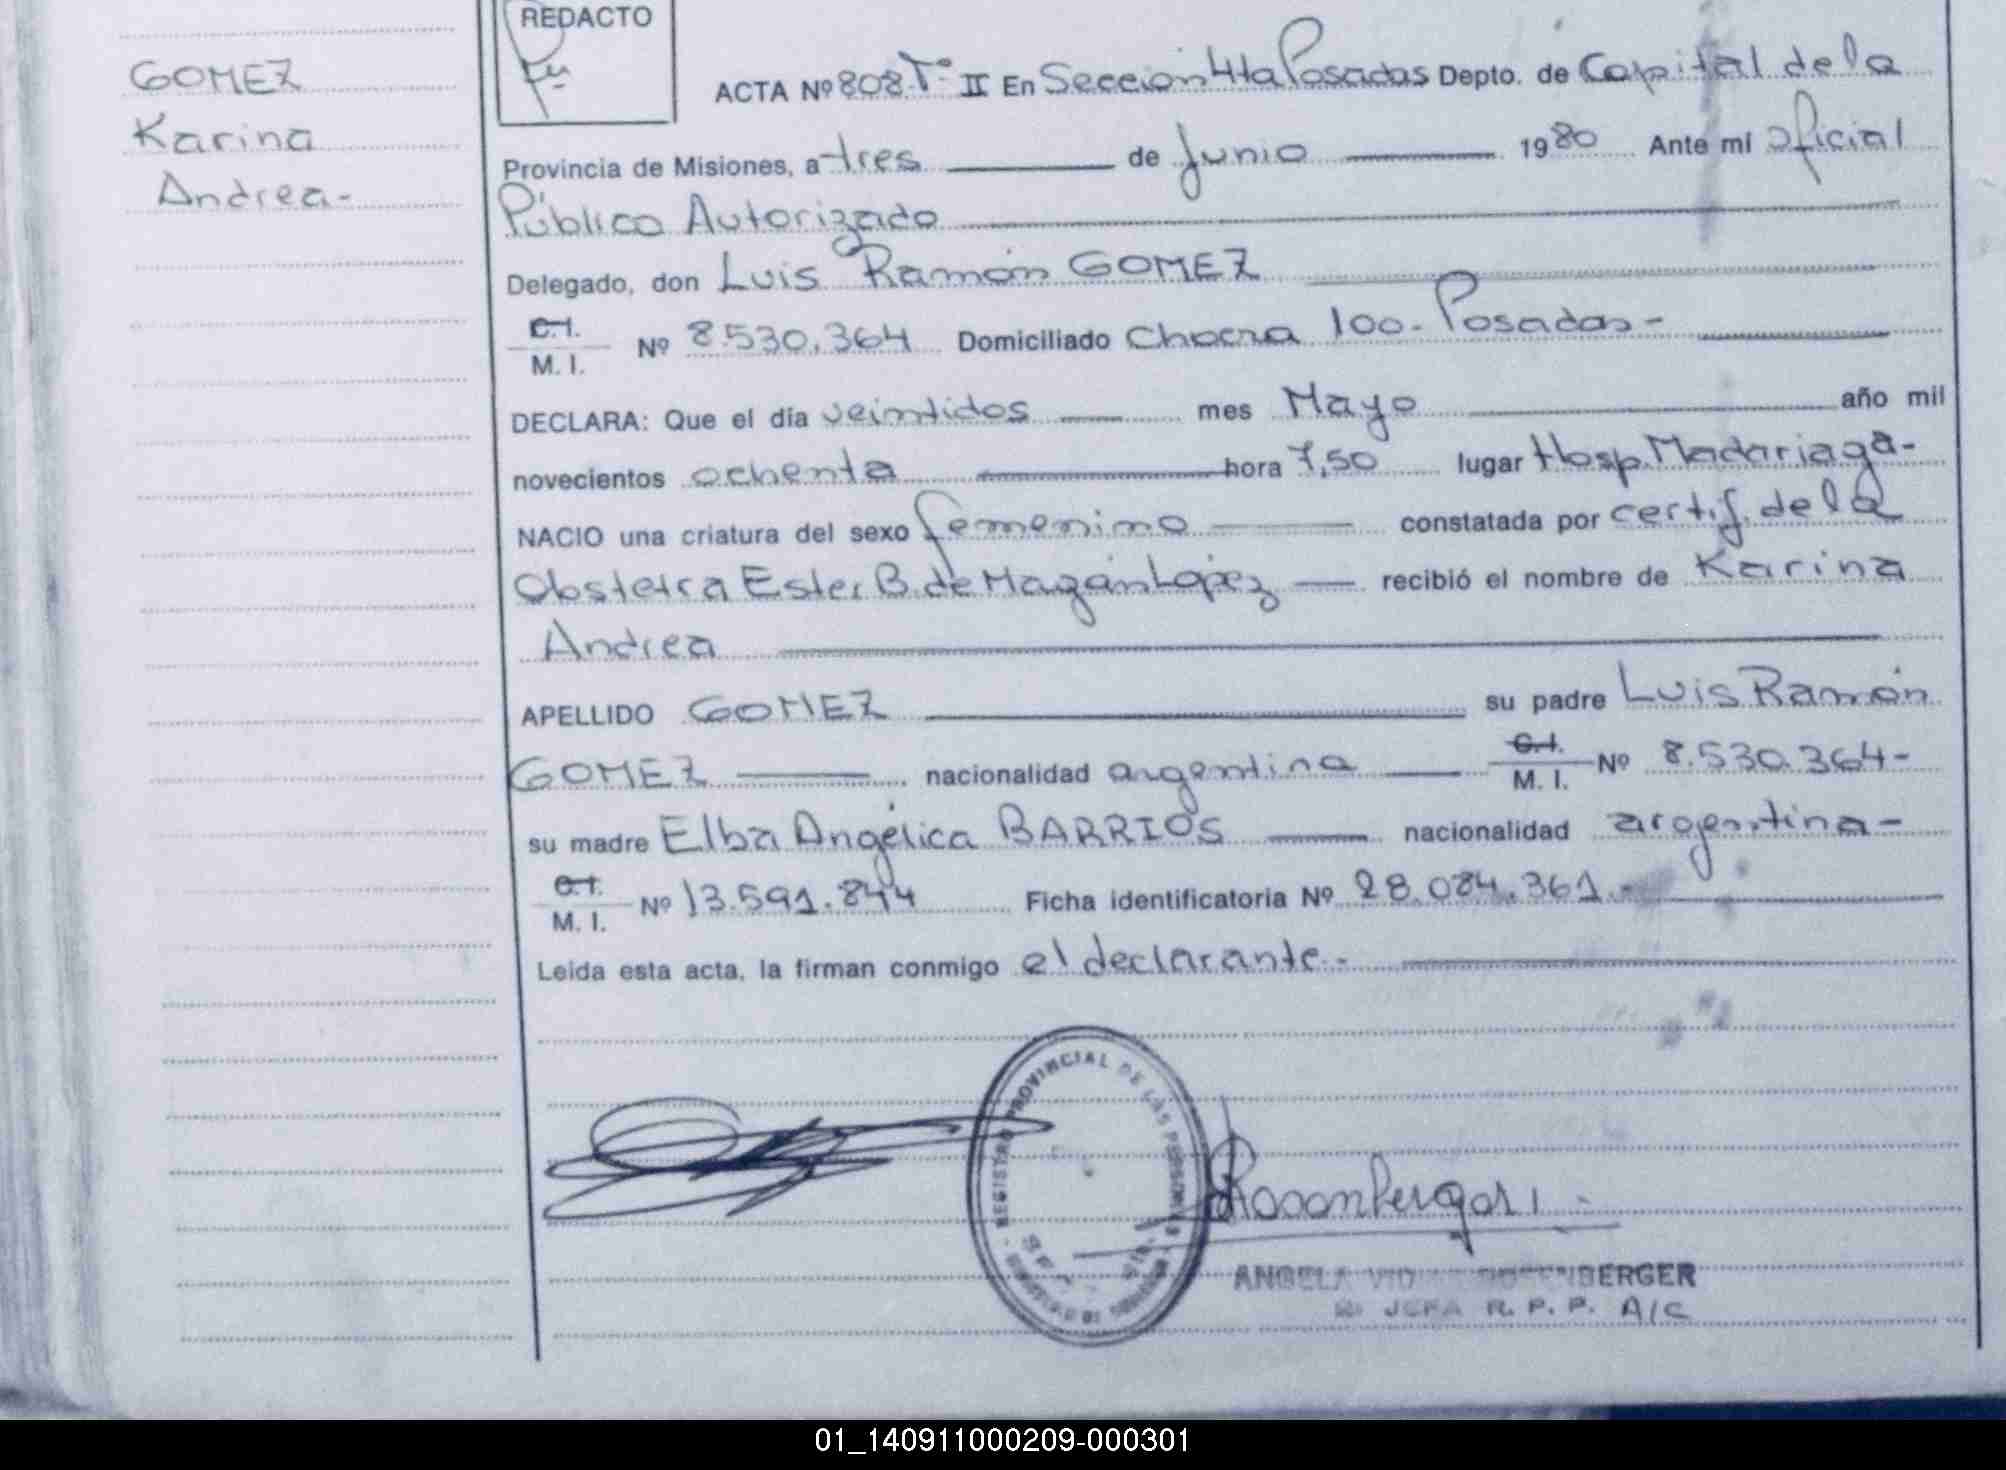 REDACTO
GOMEZ
Karina
Andrea-
ACTA Nº 808 Tº II En Sección 4ta Posadas Depto. de Capital de la
Provincia de Misiones, a tres de Junio 1980 Ante mi Oficial
Público Autorizado
Delegado, don Luis Ramón GOMEZ
C.I.
M. I. Nº 8.530.364 Domiciliado Chacra 100- Posadas-
DECLARA: Que el día veintidos mes Mayo año mil
novecientos ochenta hora 7,50 lugar Hosp. Madariaga-
NACIO una criatura del sexo femenino constatada por certif. de la
Obstetra Ester B. de Mazán López recibió el nombre de Karina
Andrea
APELLIDO GOMEZ su padre Luis Ramón
GOMEZ nacionalidad argentina C.I. M. I. Nº 8.530.364-
su madre Elba Angélica BARRIOS nacionalidad argentina-
C.I.
M. I. Nº 13.591.844 Ficha identificatoria Nº 28.084.361.-
Leida esta acta, la firman conmigo el declarante.-
REGISTRO PROVINCIAL DE LAS PERSONAS
ANGELA ROSENBERGER
JEFA R. P. P. A/C
01_140911000209-000301